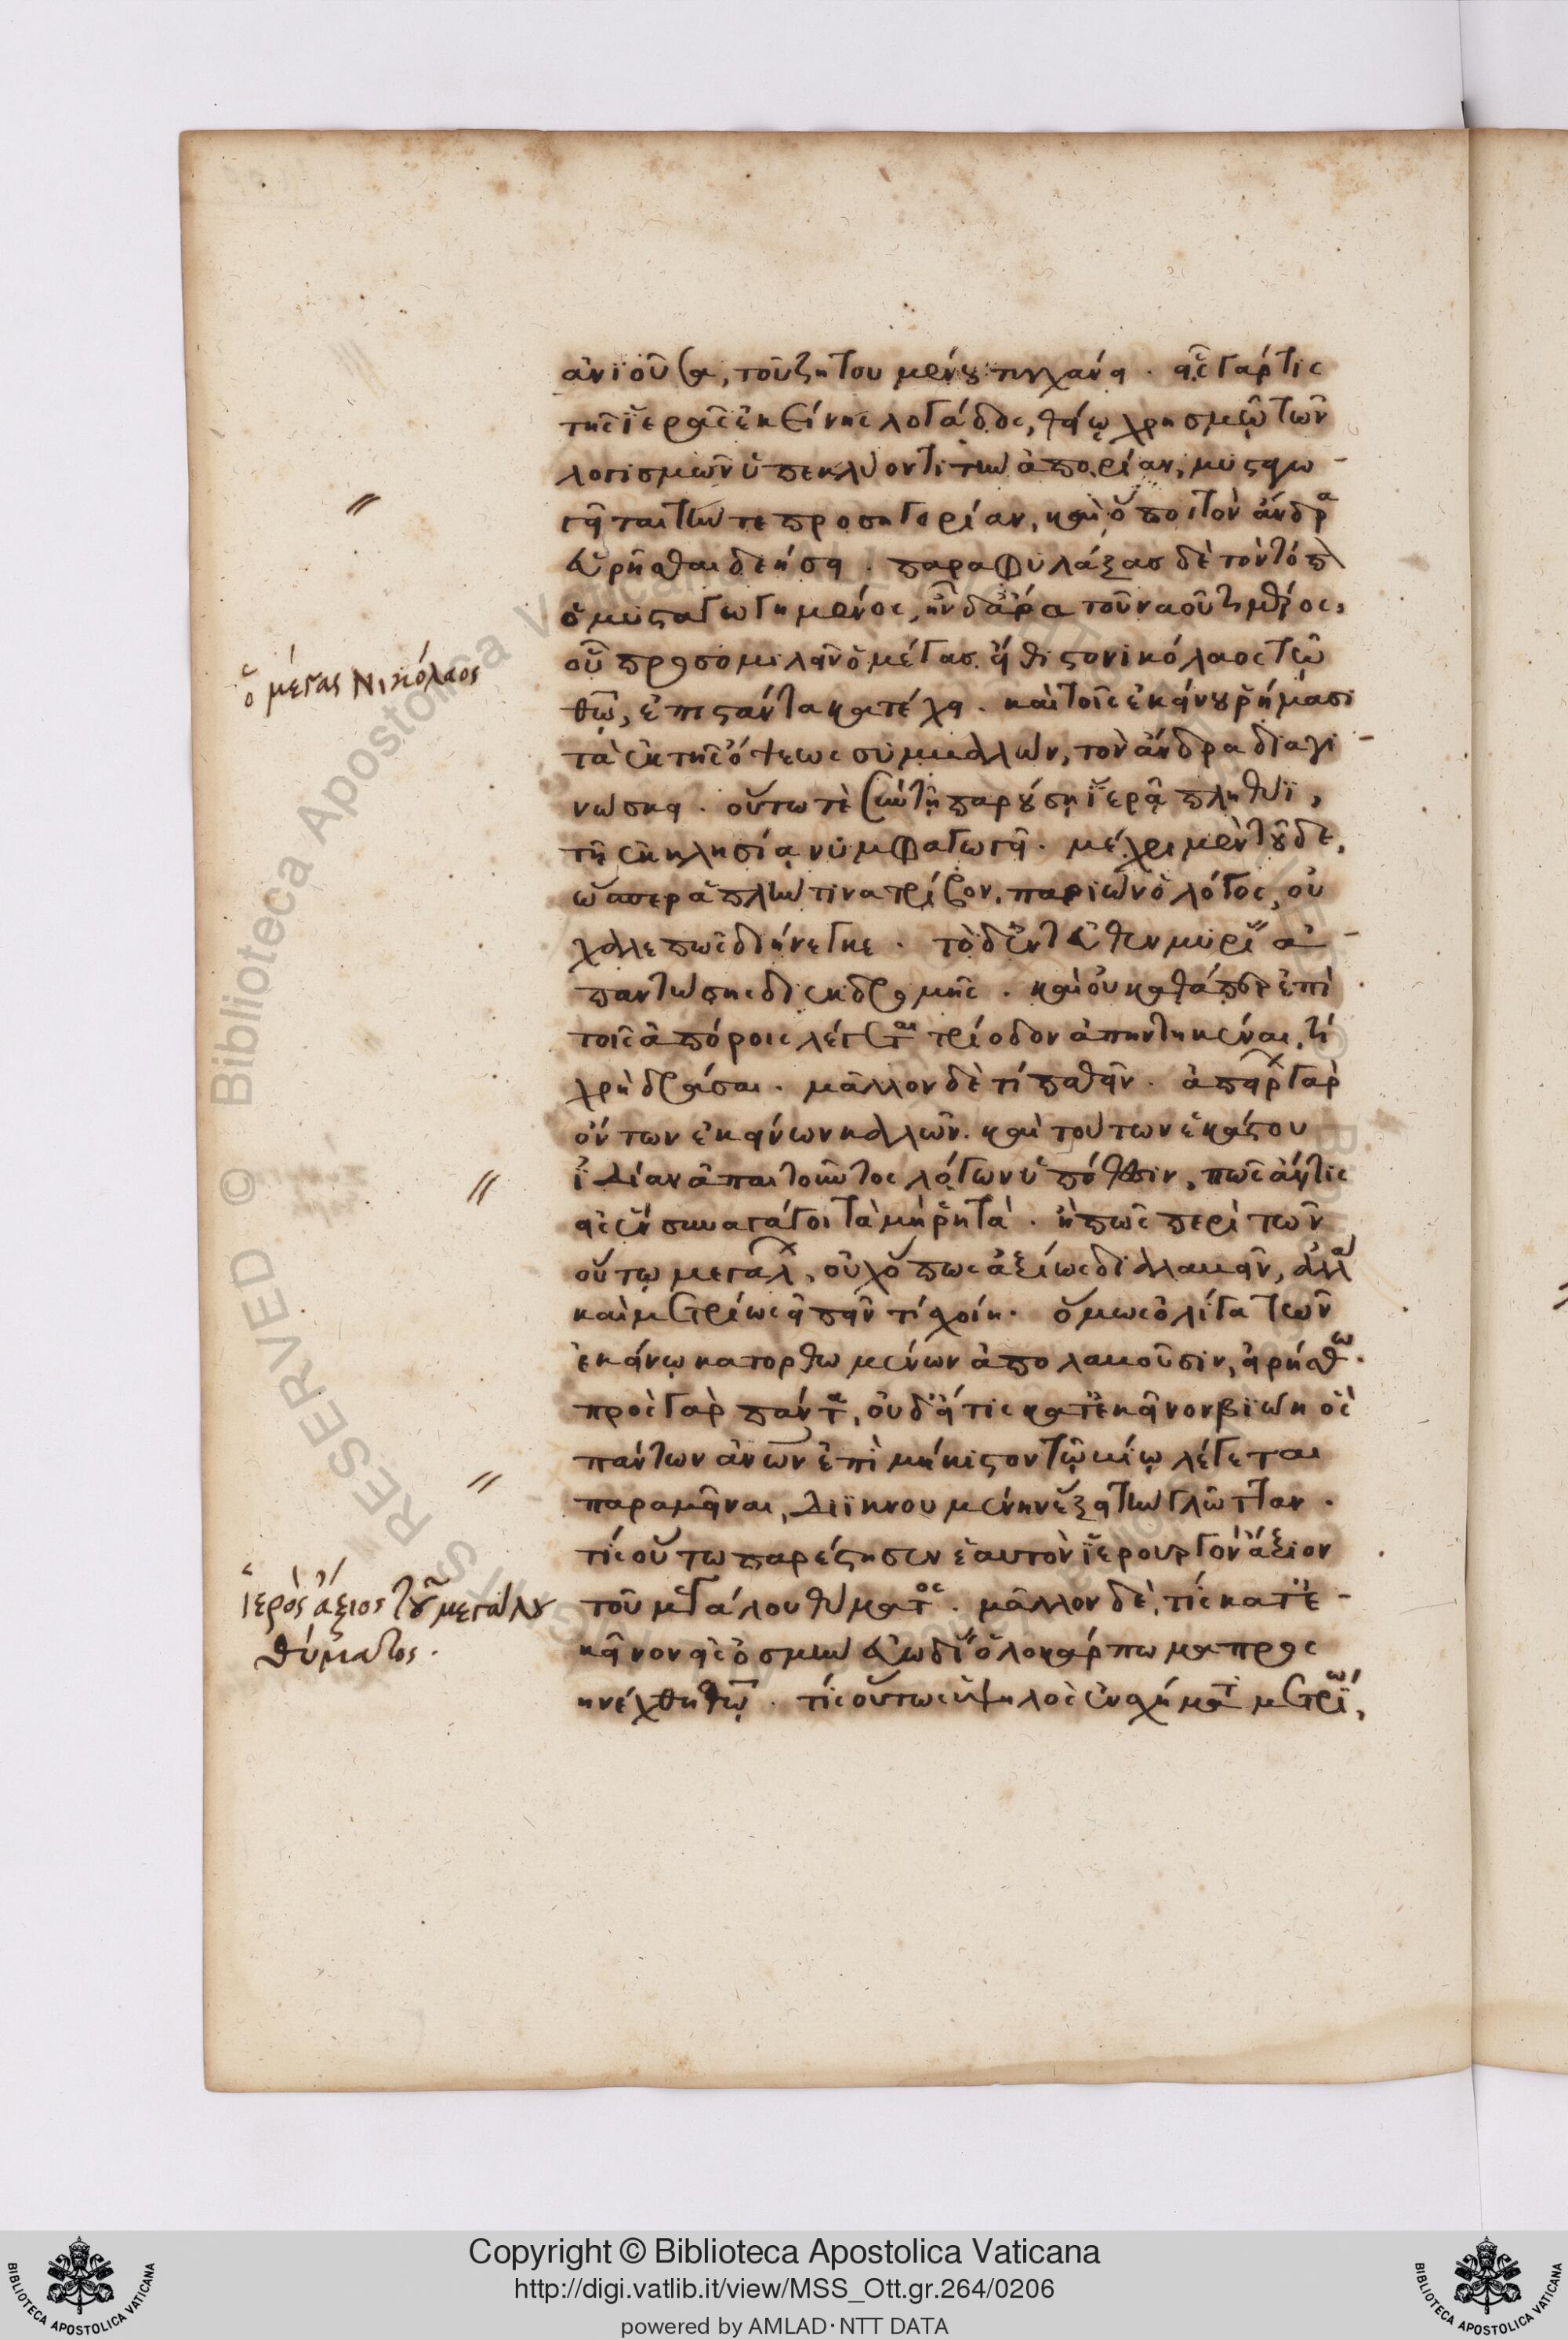 ἀνϊοῦσα, τοῦ ζητουμένου τυγχάνει. εἷς γάρ τις
τῆς ἱερᾶς ἐκείνης λογάδος, θείῳ χρησμῷ τῶν
λογισμῶν ὑπεκλύοντι τὴν ἀπορίαν, μυσταγω-
γεῖται τήν τε προσηγορίαν, καὶ ὅποι τὸν ἄνδρα
εὑρῆσθαι δεήσει. παραφυλάξας δὲ τὸν τόπον
ὁ μυσταγωγημένος, ἦν δ' ἄρα τοῦ ναοῦ
οὗ προσομιλεῖν ὁ μέγας εἴθιστο νικόλαος τῶ
θῶ, ἐπιστάντα κατέχει. καὶ τοῖς ἐκείνου ῥήμασι
τὰ ἐκ τῆς ὄψεως συμβαλλων, τὸν ἄνδρα διαγι-
νώσκει. οὕτω τὲ σὺν τῇ παρούσῃ ἱερᾷ πληθύϊ,
τῇ ἐκκλησίᾳ νυμφαγωγεῖ. μέχρι μὲν τοῦδε,
ὥσπερ ἁπλήν τινα τρίβον, παριὼν ὁ λόγος, οὐ
χαλεπῶς διήνεγκε. τὸ δ' ἐντεῦθεν μυρί
παντὼ τῆς διεκδρομῆς. καὶ οὐ καθάπερ ἐπὶ
τοῖς ἀπόροις λέγεται τρίοδον ἀπηντηκέναι, τί
χρὴ δρᾶσαι. μᾶλλον δὲ τί παθεῖν. ἀπείρων γὰρ
ὄντων ἐκείνων καλλῶν. καὶ τούτων ἑκάστου
ἰδίαν ἀπαιτοῦντος λόγων ὑπόθεσιν, πῶς ἄν τις
εἰς ἓν συναγάγοι τὰ μὴ ῥητά. ἢ πῶς περὶ τῶν
οὕτω μεγάλων, οὐχ ὅπως ἀξίως διαλαβεῖν, ἀλλὰ
καὶ μετρίως εἰπεῖν τί σχοίη. ὅμως ὀλίγα τῶν
ἐκείνῳ κατορθωμένων ἀπολαβοῦσιν, εἰρήσθω.
πρὸς γὰρ πάντα, οὐδ' εἴ τις κατ' ἐκεῖνον βιώη ὃς
πάντων ἀνων ἐπὶ μήκιστον τῷ βίῳ λέγεται
παραμεῖναι, διηκνουμένην ἕξει τὴν γλῶτταν.
τίς οὕτω παρέστησεν ἑαυτὸν ἱερουργὸν ἄξιον
τοῦ μεγάλου θύματος. μᾶλλον δὲ, τίς κατ' ἐ-
κεῖνον εἰς ὀσμὴν εὐωδίας ὁλοκάρπωμα προς
ηνέχθη θῶ. τίς οὕτως ὑψηλὸς ἐν σχήματι μετρίω,
ὁ μέγας Νικόλαος
ἱερὸς ἄξιος τοῦ μεγάλου
θύματος.
Copyright © Biblioteca Apostolica Vaticana
http://digi.vatlib.it/view/MSS_Ott.gr.264/0206
powered by AMLAD·NTT DATA
BIBLIOTECA APOSTOLICA VATICANA
BIBLIOTECA APOSTOLICA VATICANA